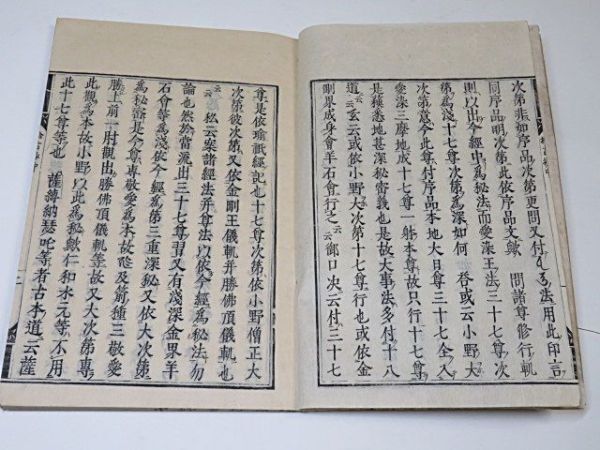 次第非如序品次第更問又付〓為法用此印言
同序品明次第此依序品文歟　問諸尊修行軌
則以出今經中為秘法而愛染王法三十七尊次
第為淺十七尊次第為深如何　答或云小野大
次第意今此尊付序品本地大日尊三十七全入
愛染三摩地成十七尊一躰本尊故只行十七尊
是積悉地甚深秘密義也是故大事法多付十八
道云云玄云或依小野大次第十七尊行也或依金
剛界成身會羊石會行之云云御口次云付三十七
尊是依瑜祇經說也十七尊次第依小野僧正大
次第彼次第又依金剛王儀軌并勝佛頂儀軌也
云云　私云案諸經法并尊法以依今經為秘法勿
論也然於當流出三十七尊習又有淺深金界羊
石會等為淺依今經為第三重深秘又依大次第
為秘密是今尊專敬愛為本故及箭種三敬愛
勝上前一肘觀出勝佛頂儀軌等故又大次第專
此觀為本故小野以此為秘歟仁和木元等不用
此十七尊等也　薩縛納瑟吒等者古本道云薩